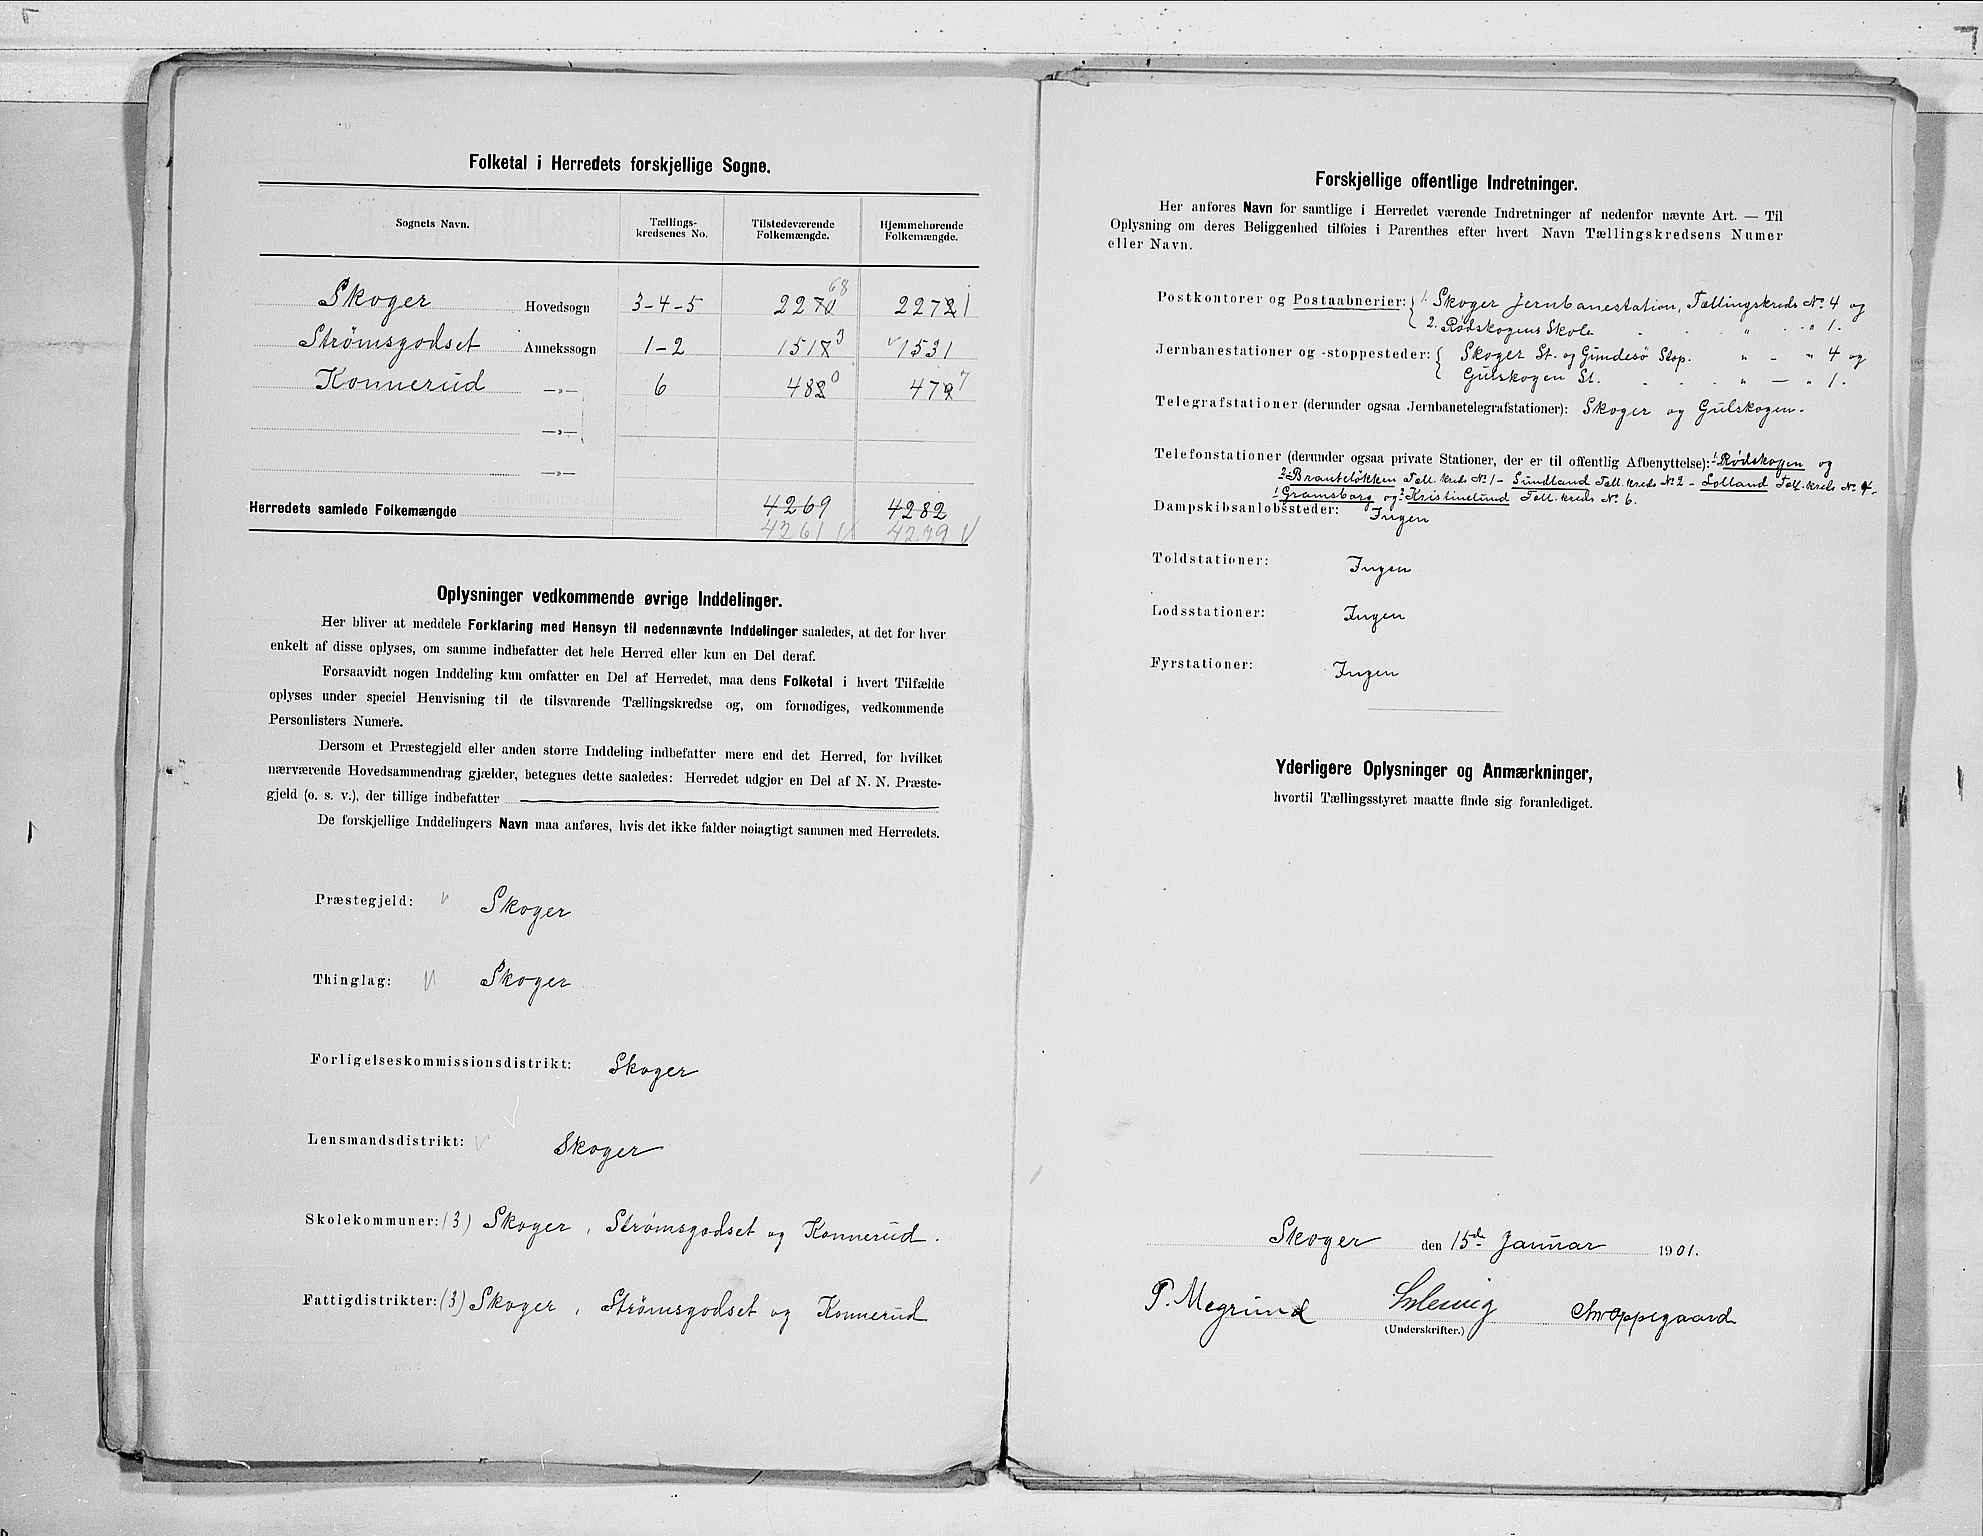 Folketal i Herredets forskjellige Sogne.
Sognets Navn. Tællings-kredsenes No. Tilstedeværende Folkemængde. Hjemmehørende Folkemængde.
Skoger Hovedsogn 3-4-5 2270 68 2272 1
Strømsgodset Annekssogn 1-2 1517 3 1531
Konnerud —»— 6 482 0 479 7
—»—
—»—
Herredets samlede Folkemængde 4269 4282
4261 4279
Oplysninger vedkommende øvrige Inddelinger.
Her bliver at meddele Forklaring med Hensyn til nedennævnte Inddelinger saaledes, at det for hver
enkelt af disse oplyses, om samme indbefatter det hele Herred eller kun en Del deraf.
Forsaavidt nogen Inddeling kun omfatter en Del af Herredet, maa dens Folketal i hvert Tilfælde
oplyses under speciel Henvisning til de tilsvarende Tællingskredse og, om fornødiges, vedkommende
Personlisters Numere.
Dersom et Præstegjeld eller anden større Inddeling indbefatter mere end det Herred, for hvilket
nærværende Hovedsammendrag gjælder, betegnes dette saaledes: Herredet udgjør en Del af N. N. Præste-
gjeld (o. s. v.), der tillige indbefatter
De forskjellige Inddelingers Navn maa anføres, hvis det ikke falder nøiagtigt sammen med Herredets.
Præstegjeld: Skoger
Thinglag: Skoger
Forligelseskommissionsdistrikt: Skoger
Lensmandsdistrikt: Skoger
Skolekommuner: (3) Skoger, Strømsgodset og Konnerud.
Fattigdistrikter: (3) Skoger, Strømsgodset og Konnerud
Forskjellige offentlige Indretninger.
Her anføres Navn for samtlige i Herredet værende Indretninger af nedenfor nævnte Art. — Til
Oplysning om deres Beliggenhed tilføies i Parenthes efter hvert Navn Tællingskredsens Numer
eller Navn.
Postkontorer og Postaabnerier: 1. Skoger Jernbanestation, Tællingskreds No. 4 og
2. Rødskogens Skole " . " 1.
Jernbanestationer og -stoppesteder: Skoger St. og Gundesø Stop. " - " 4 og
Gulskogen St. " — " 1.
Telegrafstationer (derunder ogsaa Jernbanetelegrafstationer): Skoger og Gulskogen.
Telefonstationer (derunder ogsaa private Stationer, der er til offentlig Afbenyttelse): 1. Rødskogen og
2. Branteløkken Tæll. kreds No. 1 - Sundland Tæll. kreds No. 2 - Lolland Tæll. kreds No. 4 -
1. Gramsborg og 2. Kristinelund Tæll. kreds No. 6.
Dampskibsanløbssteder: Ingen
Toldstationer: Ingen
Lodsstationer: Ingen
Fyrstationer: Ingen
Yderligere Oplysninger og Anmærkninger,
hvortil Tællingsstyret maatte finde sig foranlediget.
Skoger den 15de Januar 1901.
P. Megrund Chr Oppegaard
(Underskrifter.)